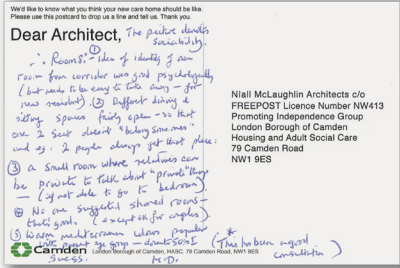 We'd like to know what you think your new care home should be like.
Please use this postcard to drop us a line and tell us. Thank you.
Dear Architect, The picture denotes
sociability.
∴ Rooms:- ① Idea of identity of own
room from corridor was good psychologically
(but needs to be easy to take away - for
new resident). ② Different dining &
sitting spaces fairly open - so that
one 2 seat doesn't "belong someones"
and eg. 2 people always get that place.
③ a small room where relatives can
be private to talk about "private" things
- (if not able to go to bedroom).
④ No one suggested shared rooms -
that's good. (except ok for couples).
⑤ Warm mediterranean colours popular
with present age group - downto 50s I
guess. H.D.
(This has been a good
consultation) *
Niall McLaughlin Architects c/o
FREEPOST Licence Number NW413
Promoting Independence Group
London Borough of Camden
Housing and Adult Social Care
79 Camden Road
NW1 9ES
Camden London Borough of Camden, HASC, 79 Camden Road, NW1 9ES